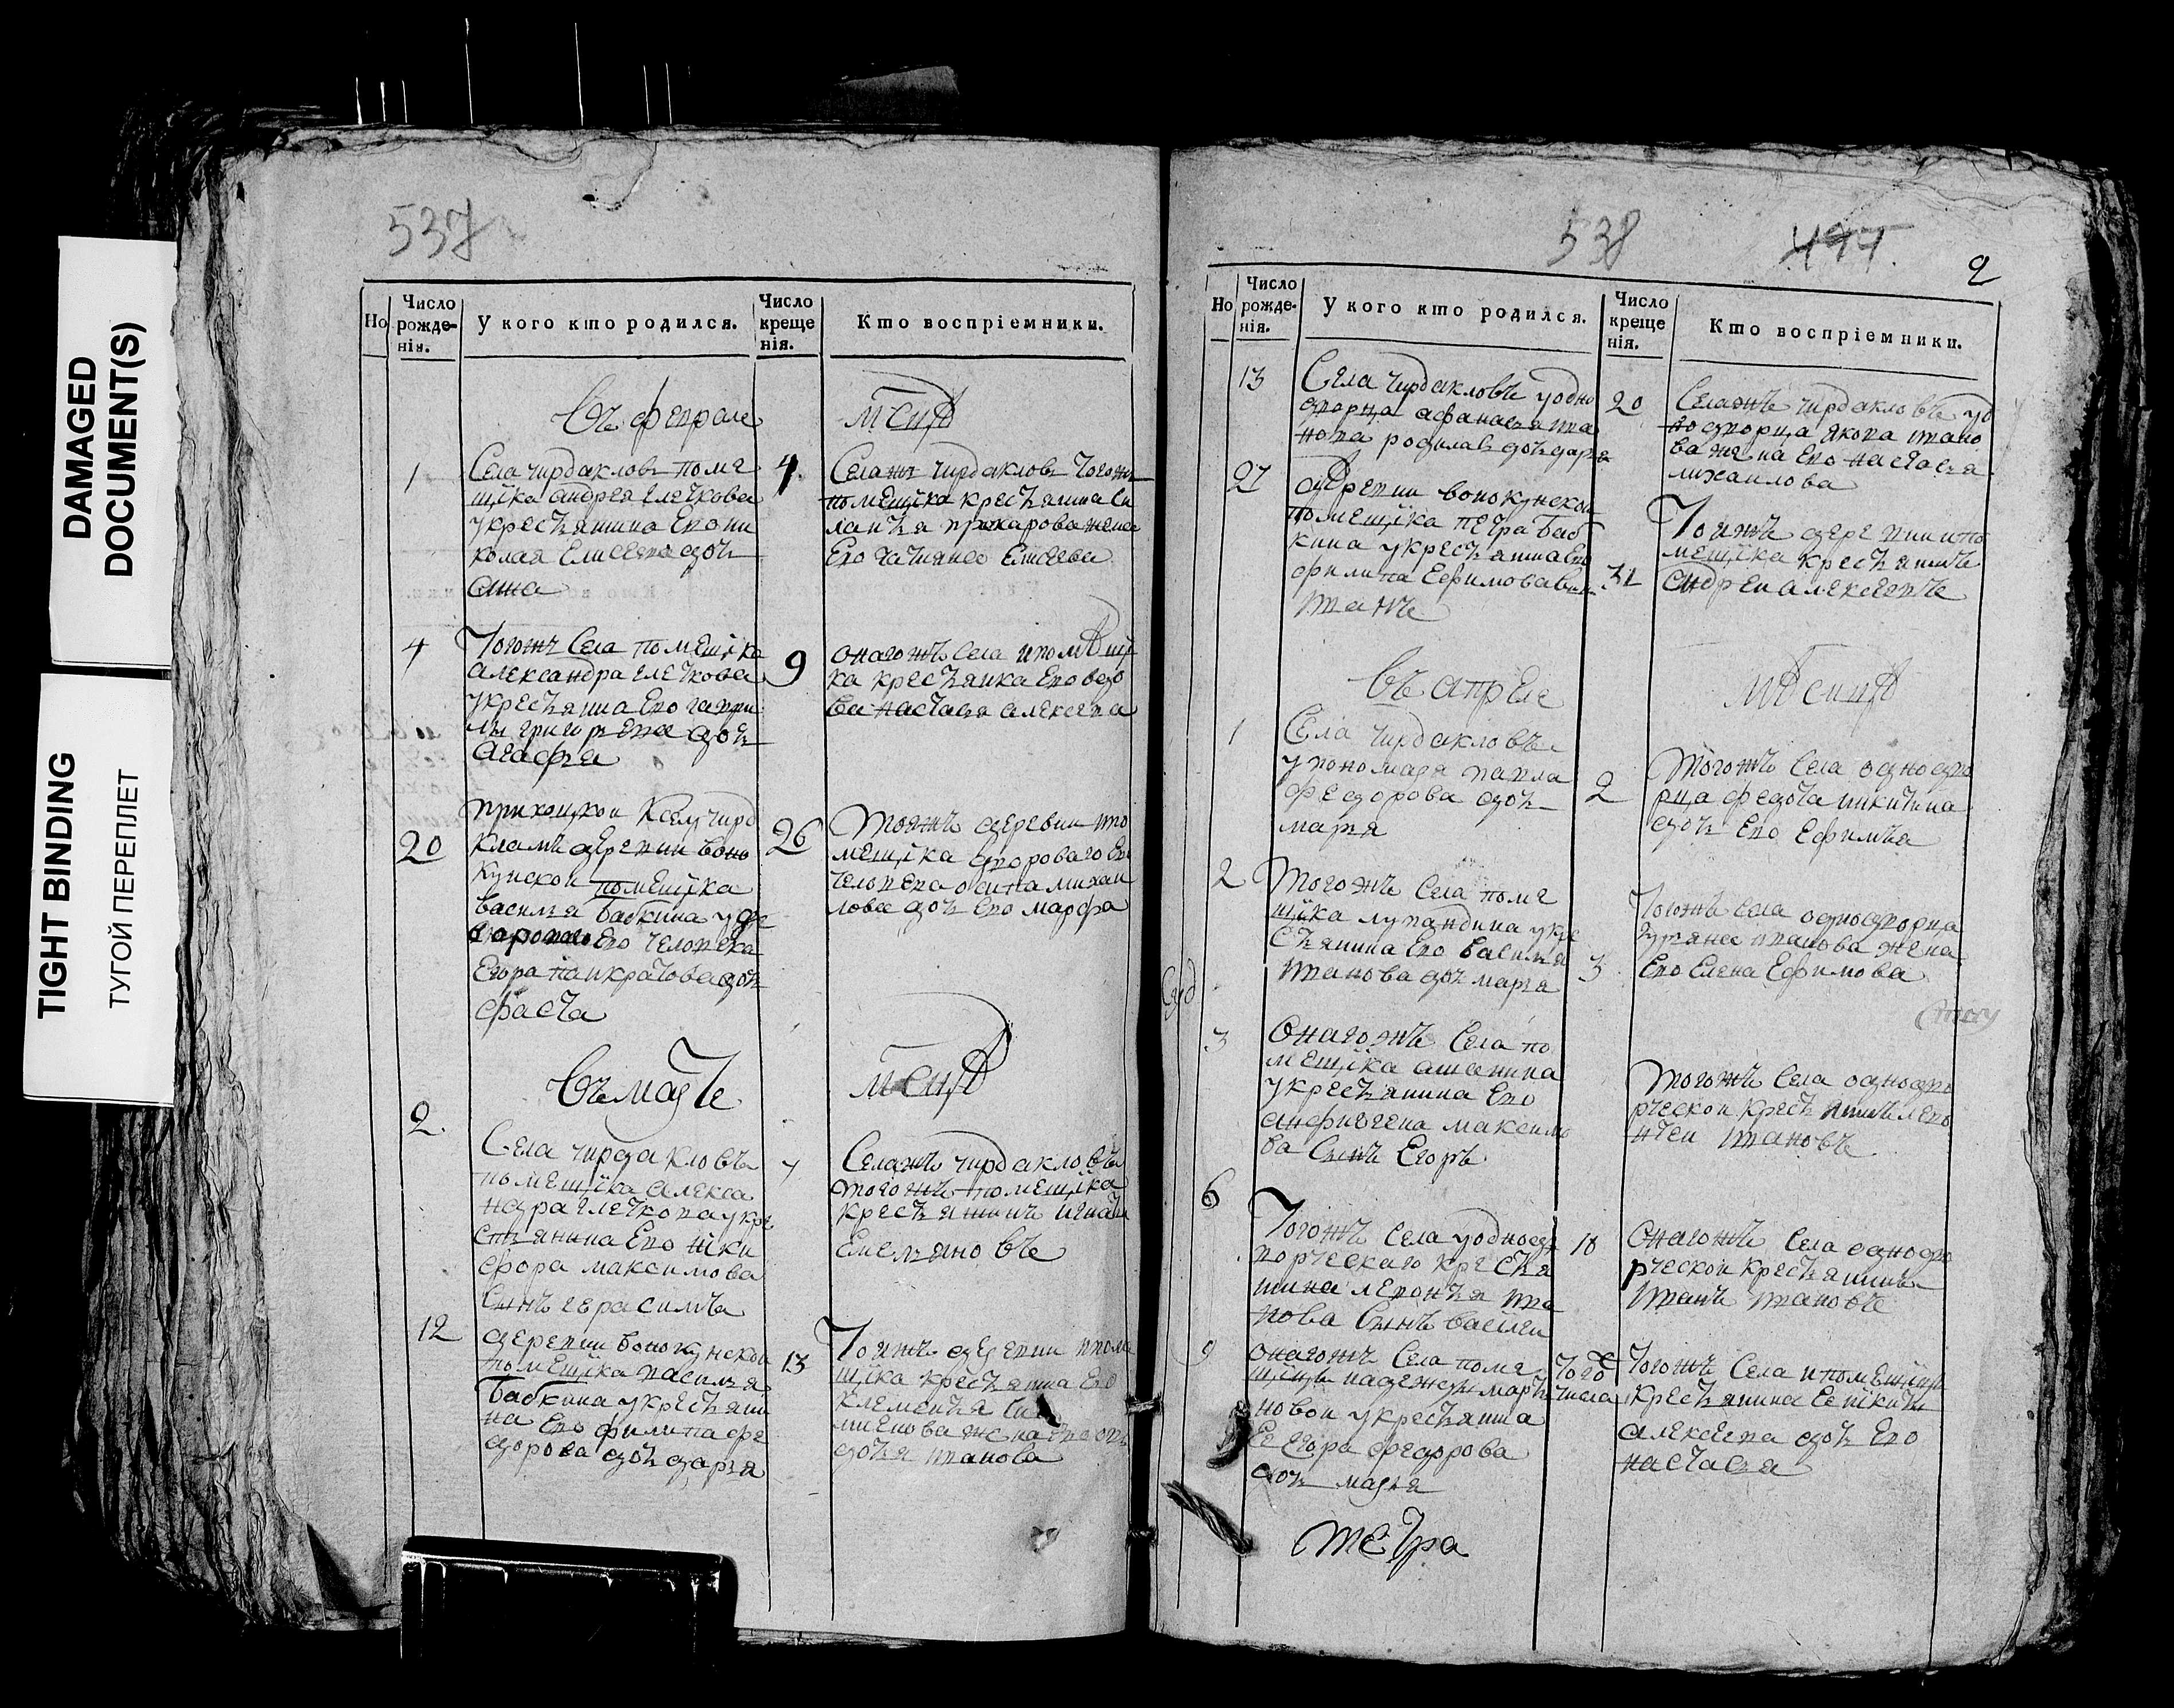 DAMAGED
DOCUMENT(S)
TIGHT BINDING
ТУГОЙ ПЕРЕПЛЕТ
537
Но
Число рожденія.
У кого кто родился.
Число крещенія.
Кто воспріемники.
Въ феврале
мсцѣ
1
Села чирдакловъ поме
щїка андрея
укрестьянина Ево ни
колая Елисеева дочь
анна
4
Селажъ чирдакловъ тогожъ
помещїка крестьянина си
жена
Ево татьяна Елисеева
4
Тогожъ Села помещїка
александра
укрестьянина Ево гаври
лы григорьева дочь
агафья
9
онагожъ Села ипомѣщї
ка крестьянка Ево вдо
ва настасья алексева
20
приходкои Кселу чирда
кламъ деревни воно
кунскои помещїка
василья бабкина удво
Ево человека
Егора панкратова дочь
26
тояжъ деревни ипо
мещїка дворового Ево
человека осипа михаи
лова дочь Ево марфа
Въ мартѣ
мсцѣ
2
Села чирдакловъ
помещїка алекса
ндра укре
стьянина Ево ники
фора максимова
Сынъ герасимъ
7
Селажъ чирдакловъ
тогожъ помещїка
крестьянинъ игнатъ
Емельяновъ
12
деревни вонокунскои
помещїка василья
бабкина укрестьяни
на Ево филипа фе
дорова дочь дарья
13
Тояжъ деревни ипоме
щїка крестьянина Ево
клементья
жена Ево
ивановa
538
497
2
Но
Число рожденія.
У кого кто родился.
Число крещенія.
Кто воспріемники.
13
Села чирдакловъ уодно
дворца афанасья ива
нова родилась дочь дарья
20
Селажъ чирдакловъ уод
нодворца якова ивано
ва жена Ево настасья
михаилова
27
деревни вонокунскои
помещїка петра баб
кина укрестьянина Ево
филипа Ефимова сынъ
иванъ
31
Тояжъ деревни ипо
мещїка крестьянинъ
андреи алексеевъ
въ апреле
мѣсицѣ
1
Села чирдакловъ
упономаря павла
федорова дочь
марья
2
тогожъ Села однодво
рца федота никитина
дочь Ево Ефимья
2
тогожъ Села поме
щїка лупандина укре
стьянина Ево василья
иванова дочь марья
3
Тогожъ Села однодворца
иванова жена
Ево Елена Ефимова
3
Онагожъ Села по
мещїка ашанина
укрестьянина Ево
максимо
ва Сынъ Егоръ
тогожъ Села однодво
рческои крестьянинъ лево
нтеи ивановъ
6
Тогожъ Села уоднодв
орческаго крестья
нина левонтья ива
нова Сынъ василеи
10
Онагожъ Села однодво
рческои крестьянинъ
иванъ ивановъ
9
онагожъ Села поме
щїцы надежды марты
новои укрестьянина
Ее Егора федорова
дочь марья
Того числа
Тогожъ Села ипомещїцы
крестьянина Ее никиты
алексеева дочь Ево
настасья